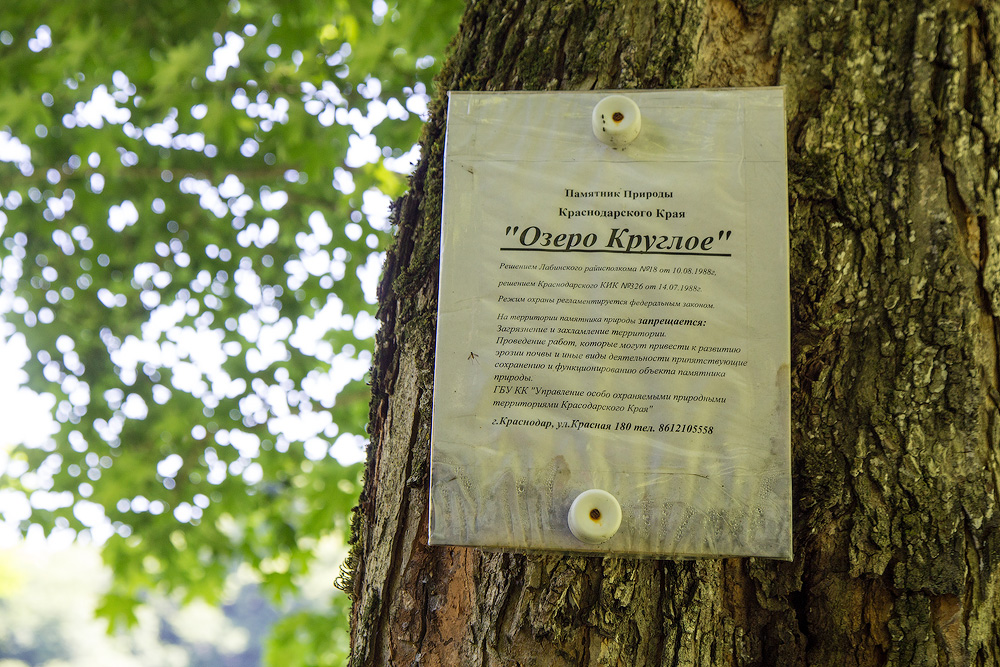 Памятник Природы
Краснодарского Края
"Озеро Круглое"
Решением Лабинского райисполкома №18 от 10.08.1988г,
решением Краснодарского КИК №326 от 14.07.1988г.
Режим охраны регламентируется федеральным законом.
На территории памятника природы запрещается:
Загрязнение и захламление территории.
Проведение работ, которые могут привести к развитию
эрозии почвы и иные виды деятельности припятствующие
сохранению и функционированию объекта памятника
природы.
ГБУ КК "Управление особо охраняемыми природными
территориями Красодарского Края"
г.Краснодар, ул.Красная 180 тел. 8612105558